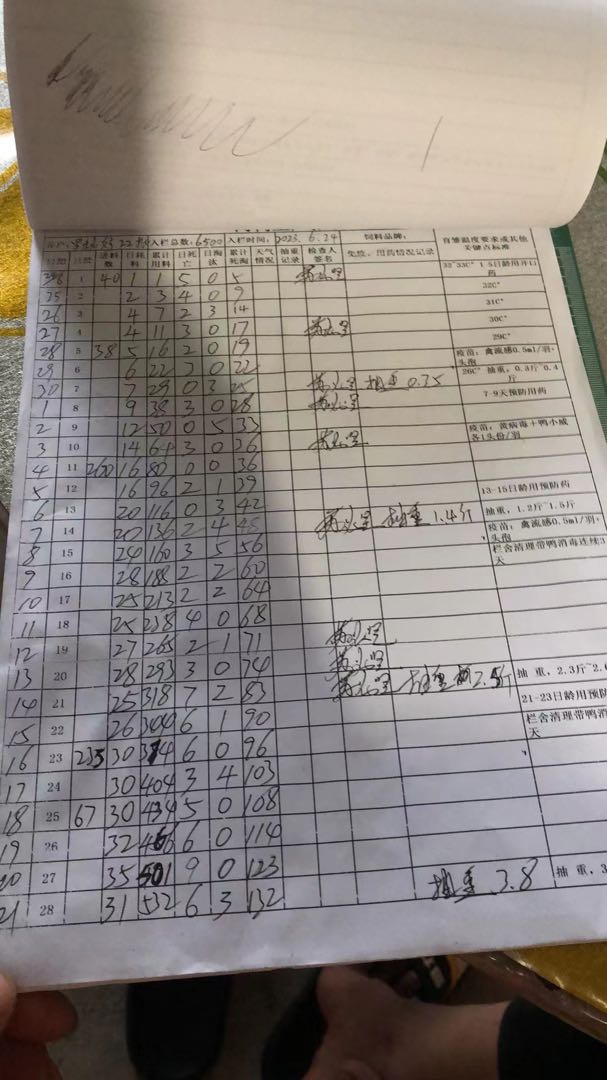 22 入栏总数: 6500 入栏时间: 2023. 6.24 饲料品牌:
日期 日龄 进料数 日耗料 累计用料 日死亡 日淘汰 累计死淘 天气情况 抽重记录 检查人签名 免疫、用药情况记录 育雏温度要求或其他关键点标准
1 40 1 1 5 0 5 32~33C° 1-5日龄用开口药
25 2 2 3 4 0 9 32C°
26 3 4 7 2 3 14 31C°
27 4 4 11 3 0 17 30C°
28 5 38 5 16 2 0 19 29C° 疫苗:禽流感0.5ml/羽,头孢
29 6 6 22 3 0 22
30 7 7 29 0 3 25 抽重 0.35 26C° 抽重,0.3斤 0.4斤
1 8 9 38 3 0 28 7-9天预防用药
2 9 12 50 0 5 33
3 10 14 64 3 0 36 疫苗:黄病毒+鸭小威各1头份/羽
4 11 260 16 80 0 0 36
5 12 16 96 2 1 39
6 13 20 116 0 3 42 13-15日龄用预防药
7 14 20 136 2 4 48 抽重 1.4斤 抽重,1.2斤~1.5斤 疫苗:禽流感0.5ml/羽,头孢
8 15 24 160 3 5 56 栏舍清理带鸭消毒连续3天
9 16 28 188 2 2 60
10 17 25 213 2 2 64
11 18 25 238 4 0 68
12 19 27 265 2 1 71
13 20 28 293 3 0 74
14 21 25 318 7 2 83 抽重 2.5斤 抽重,2.3斤~2.
15 22 26 344 6 1 90 21-23日龄用预防
16 23 235 30 374 6 0 96 栏舍清理带鸭消 天
17 24 30 404 3 4 103
18 25 67 30 434 5 0 108
19 26 32 466 6 0 114
20 27 35 501 9 0 123
21 28 31 532 6 3 132 抽重 3.8 抽重,3